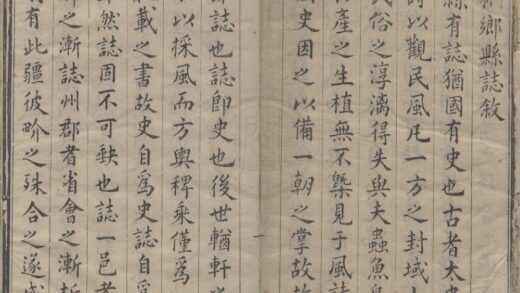 鄉縣誌敘
縣有誌猶國有史也古者太史
詩以觀民風凡一方之封域
民俗之淳漓得失與夫蟲魚鳥
產之生植無不槩見于風詩
史因之以備一朝之掌故故
一
誌也誌即史也後世輶軒
以採風而方輿稗乘僅爲
載之書故史自爲史誌自爲
然誌固不可缺也誌一邑者
之漸誌州郡者省會之漸
有此疆彼畍之殊合之遂成